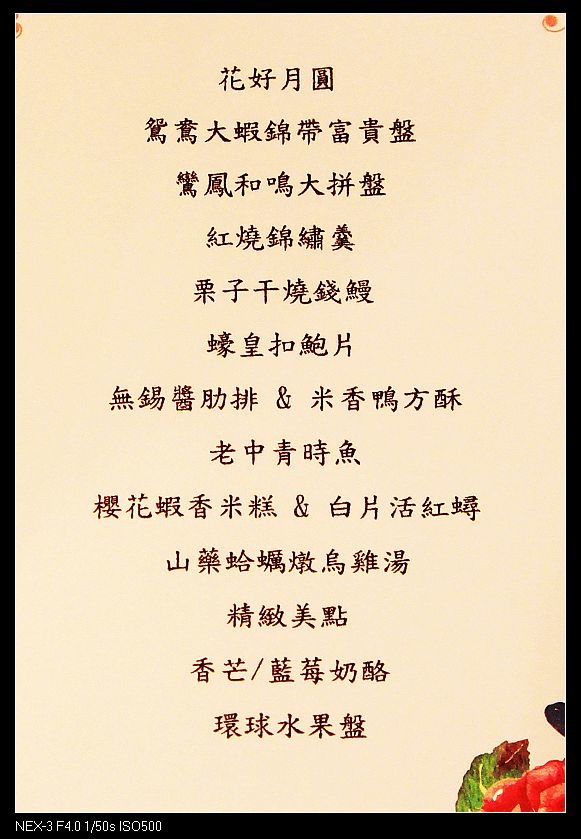 花好月圓
鴛鴦大蝦錦帶富貴盤
鸞鳳和鳴大拼盤
紅燒錦繡羹
栗子干燒錢鰻
蠔皇扣鮑片
無錫醬肋排 & 米香鴨方酥
老中青時魚
櫻花蝦香米糕 & 白片活紅蟳
山藥蛤蠣燉烏雞湯
精緻美點
香芒/藍莓奶酪
環球水果盤
NEX-3 F4.0 1/50s ISO500